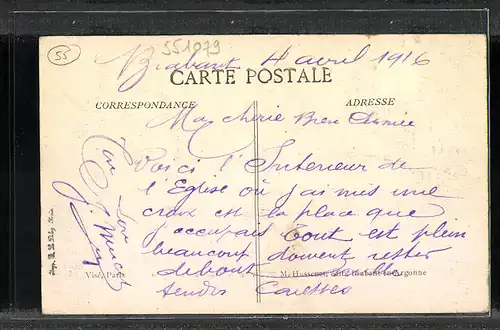 55
551079
Brabant 4 avril 1916
CARTE POSTALE
CORRESPONDANCE
ADRESSE
Ma chérie Bien Aimée
Voici l'Interieur de
l'Eglise où j'ai mis une
croix est la place que
j'occupais tout est plein
beaucoup doivent rester
debout
Visé, Paris
M. Hussenet, édit. Brabant-en-Argonne
tendres Caresses
Ton